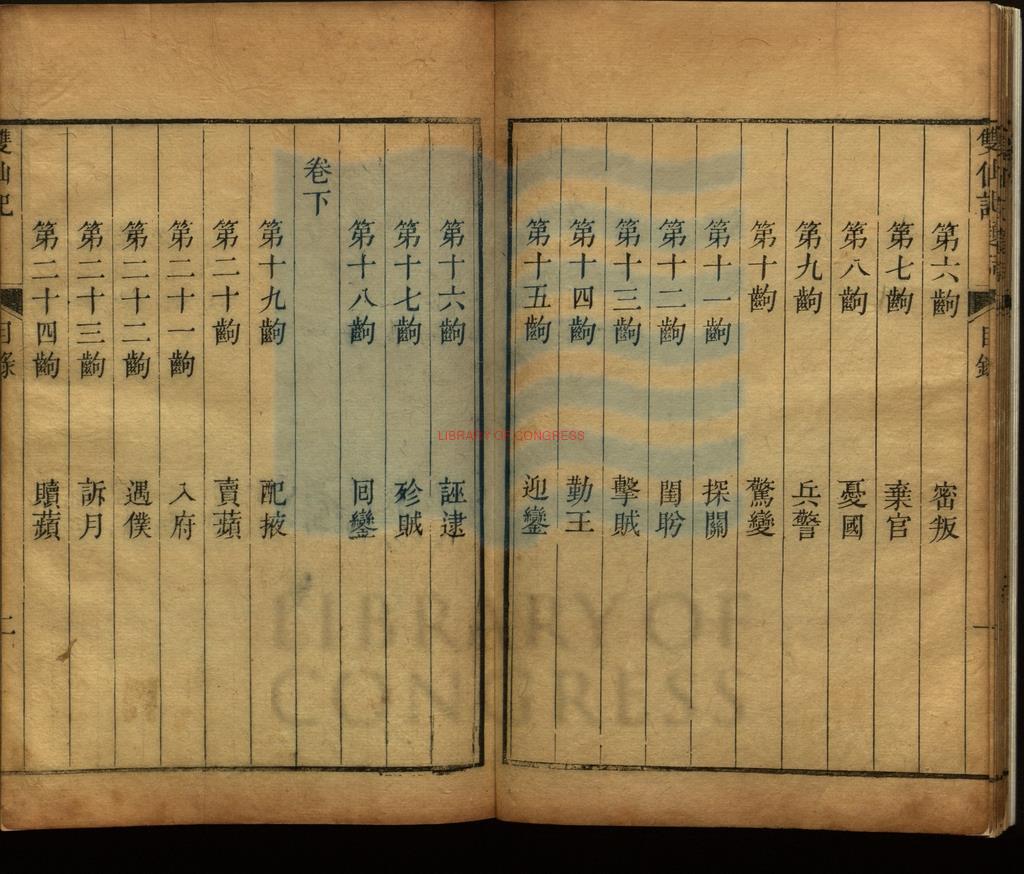 雙仙記
目錄
一
第六齣 密叛
第七齣 棄官
第八齣 憂國
第九齣 兵警
第十齣 驚變
第十一齣 探關
第十二齣 閨盼
第十三齣 擊賊
第十四齣 勤王
第十五齣 迎鑾
第十六齣 誣逮
第十七齣 殄賊
第十八齣 回鑾
卷下
第十九齣 配掖
第二十齣 賣蘋
第二十一齣 入府
第二十二齣 遇僕
第二十三齣 訴月
第二十四齣 贖蘋
雙仙記
目錄
二
LIBRARY OF CONGRESS
LIBRARY OF
CONGRESS